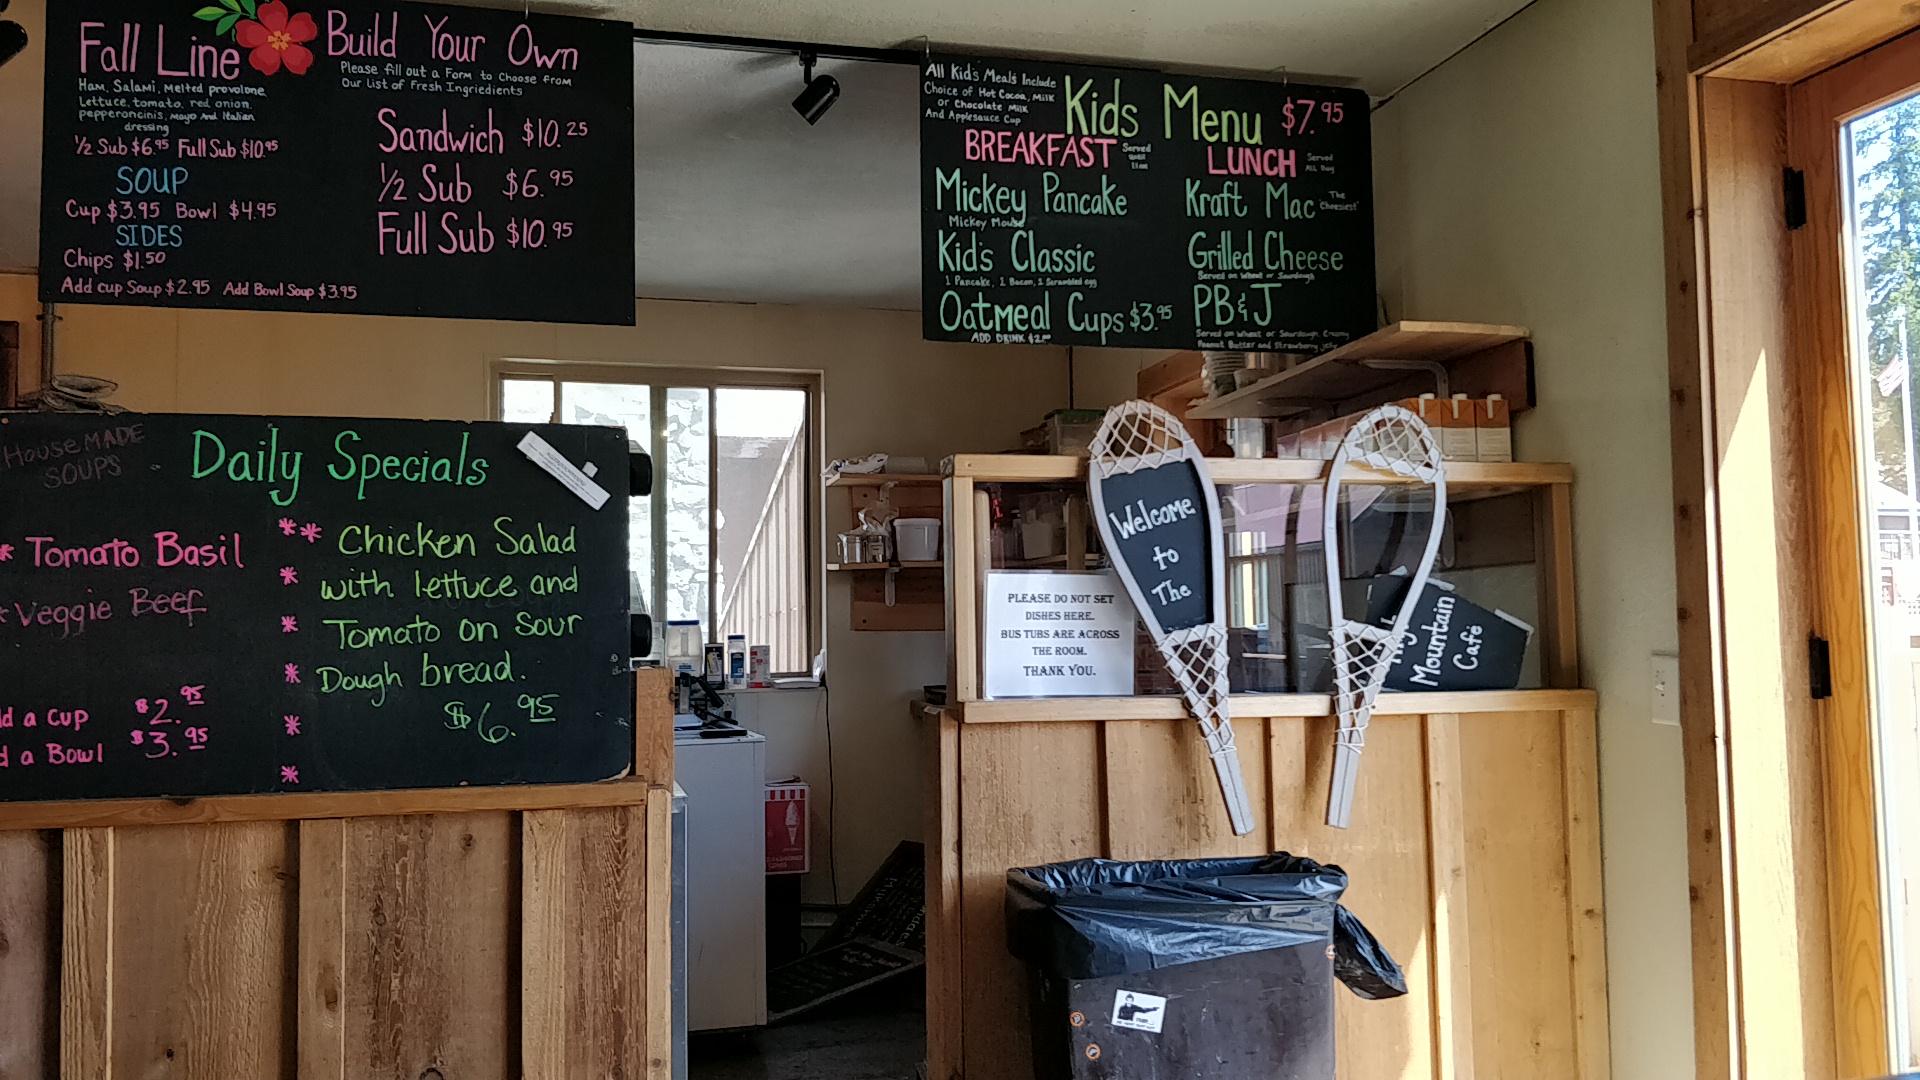 Fall Line
Ham, Salami, Melted provolone
Lettuce, tomato, red onion,
pepperoncinis, Mayo And Italian
dressing
½ Sub $6.95 Full Sub $10.95
SOUP
Cup $3.95 Bowl $4.95
SIDES
Chips $1.50
Add cup Soup $2.95 Add Bowl Soup $3.95
Build Your Own
Please fill out a Form to Choose from
Our list of Fresh Ingredients
Sandwich $10.25
½ Sub $6.95
Full Sub $10.95
All Kid's Meals Include
Choice of Hot Cocoa, Milk
or Chocolate Milk
And Applesauce Cup
Kids Menu $7.95
BREAKFAST Served
until
11am
Mickey Pancake
Mickey Mouse
Kid's Classic
1 Pancake, 1 Bacon, 1 Scrambled egg
Oatmeal Cups $3.95
ADD DRINK
LUNCH Served
ALL Day
Kraft Mac "The
Cheesiest"
Grilled Cheese
Served on Wheat or Sourdough
PB&J
Served on Wheat or Sourdough, Creamy
Peanut Butter and Strawberry jelly
House MADE
SOUPS
Daily Specials
* Tomato Basil
* Veggie Beef
d a Cup $2.95
d a Bowl $3.95
** Chicken Salad
* with lettuce and
* Tomato on Sour
* Dough bread.
* $6.95
*
Welcome
to
The
Mountain
Café
PLEASE DO NOT SET
DISHES HERE.
BUS TUBS ARE ACROSS
THE ROOM.
THANK YOU.